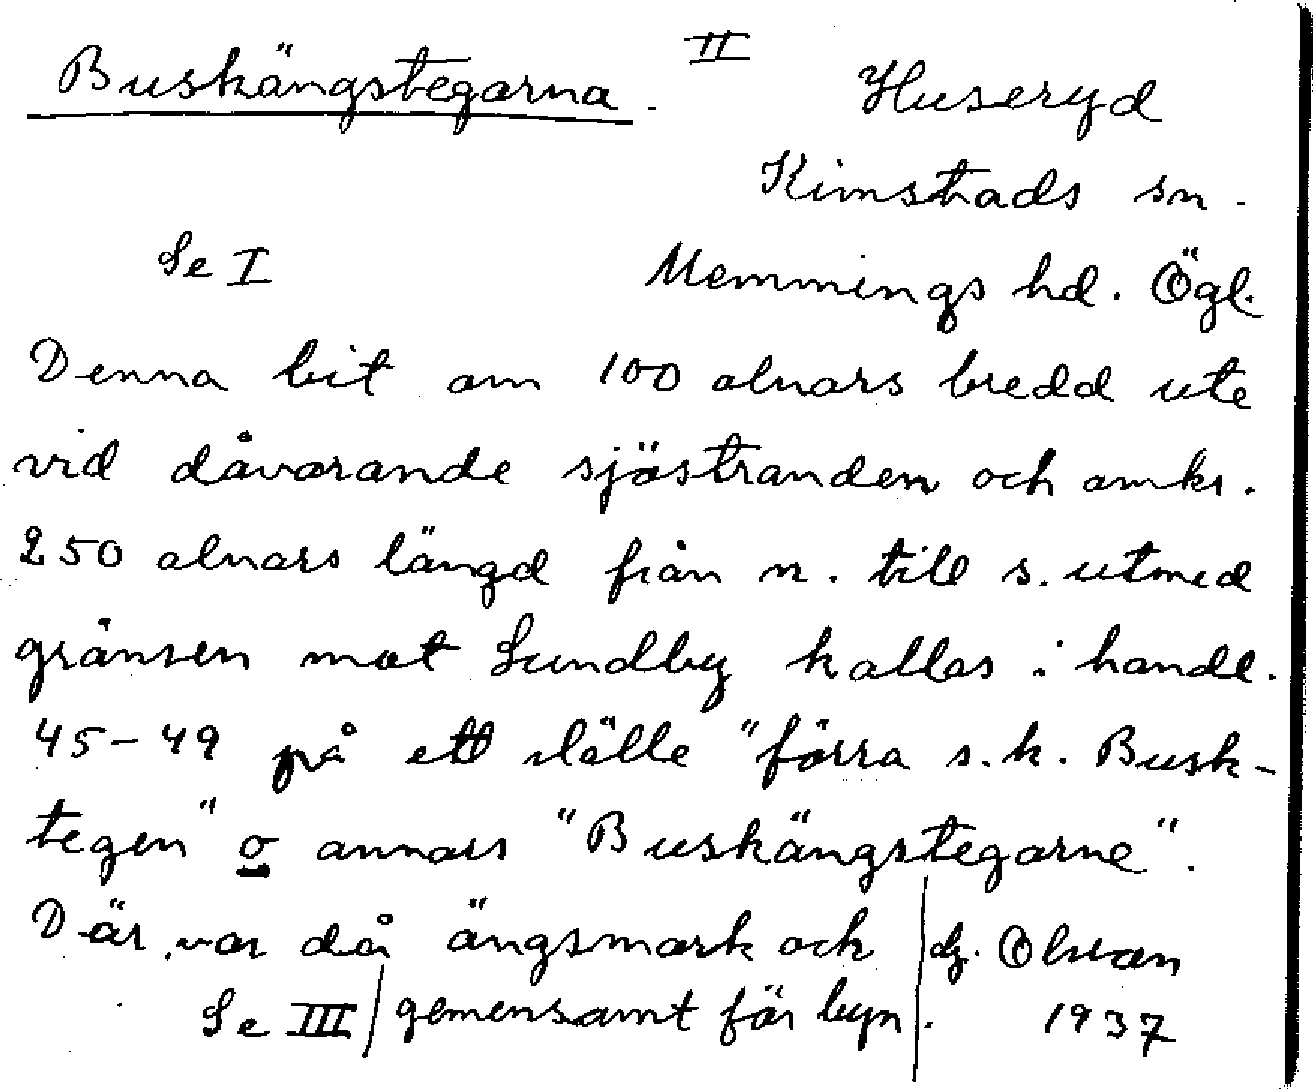 II
Buskängstegarna. Huseryd
Kimstads sn.
Se I Memmings hd. Ögl.
Denna bit om 100 alnars bredd ute
vid dåvarande sjöstranden och omkr.
250 alnars längd från n. till s. utmed
gränsen mot Sundby kallas i handl.
45-49 på ett ställe "förra s.k. Busk-
tegen" o annars "Buskängstegarne".
Där var då ängsmark och
gemensamt för byn.
Se III
Olsson
1937